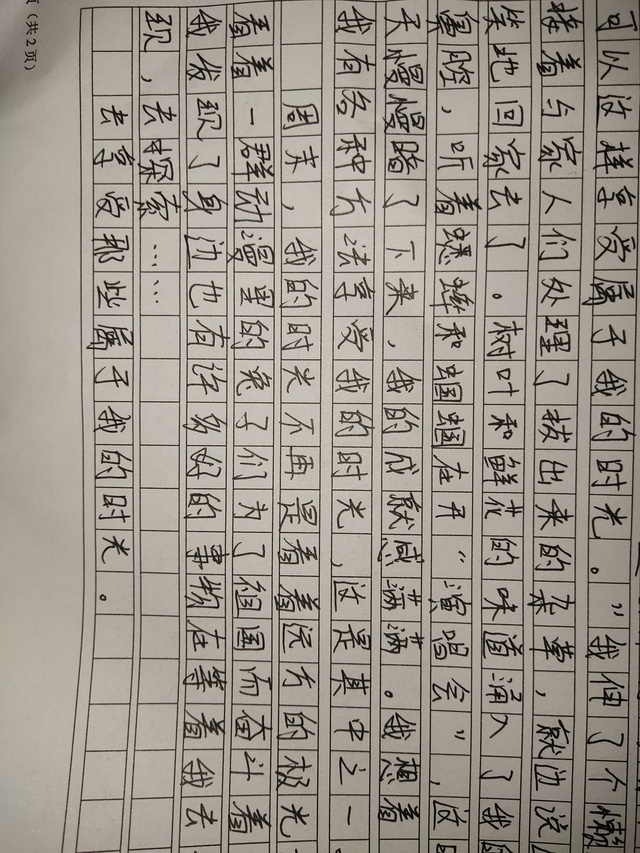 可以这样享受属于我的时光。”我伸了个懒
接着与家人们处理了拔出来的杂草，就边说
笑地回家去了。树叶和鲜花的味道涌入了我
鼻腔，听着蟋蟀和蝈蝈在开“演唱会”，这
天慢慢暗了下来，我的成就感满满。我想着
我有各种方法享受我的时光，这是其中之一
周末，我的时光不再是看着远方的极光
看着一群动漫里的兔子们为了祖国而奋斗着
我发现了身边也有许多好的事物在等着我去
现，去探索……
去享受那些属于我的时光。
（共2页）